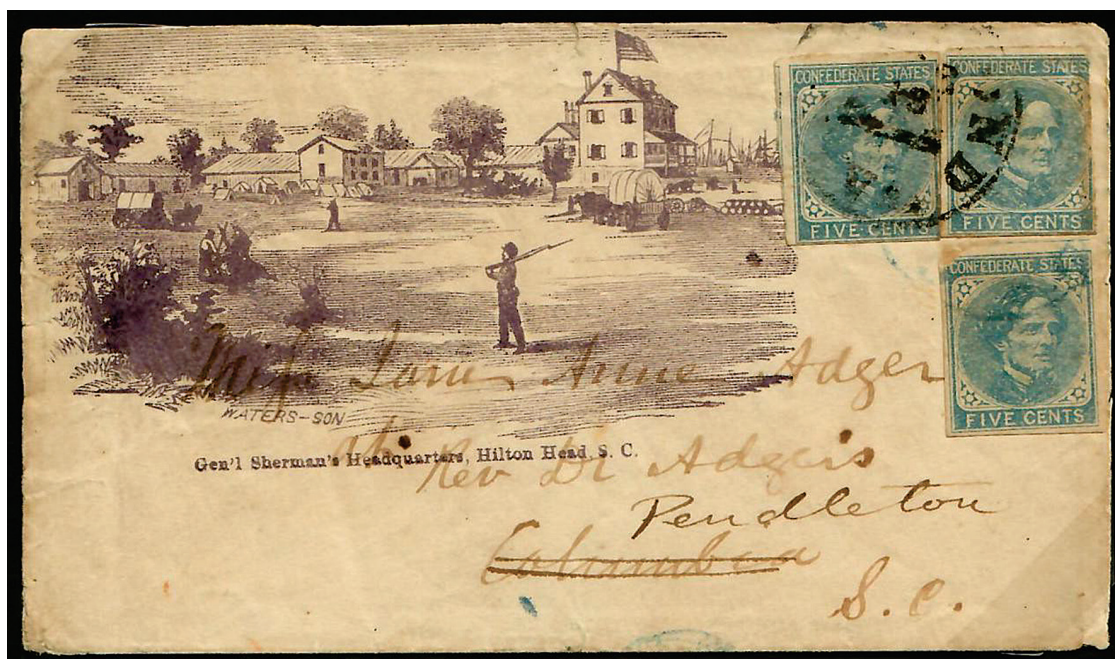 CONFEDERATE STATES
FIVE CENTS
CONFEDERATE STATES
FIVE CENTS
CONFEDERATE STATES
FIVE CENTS
ND
WATERS-SON
Gen'l Sherman's Headquarters, Hilton Head, S. C.
Miss Anne Adger
Rev Dr Adgers
Pendleton
Columbia
S. C.